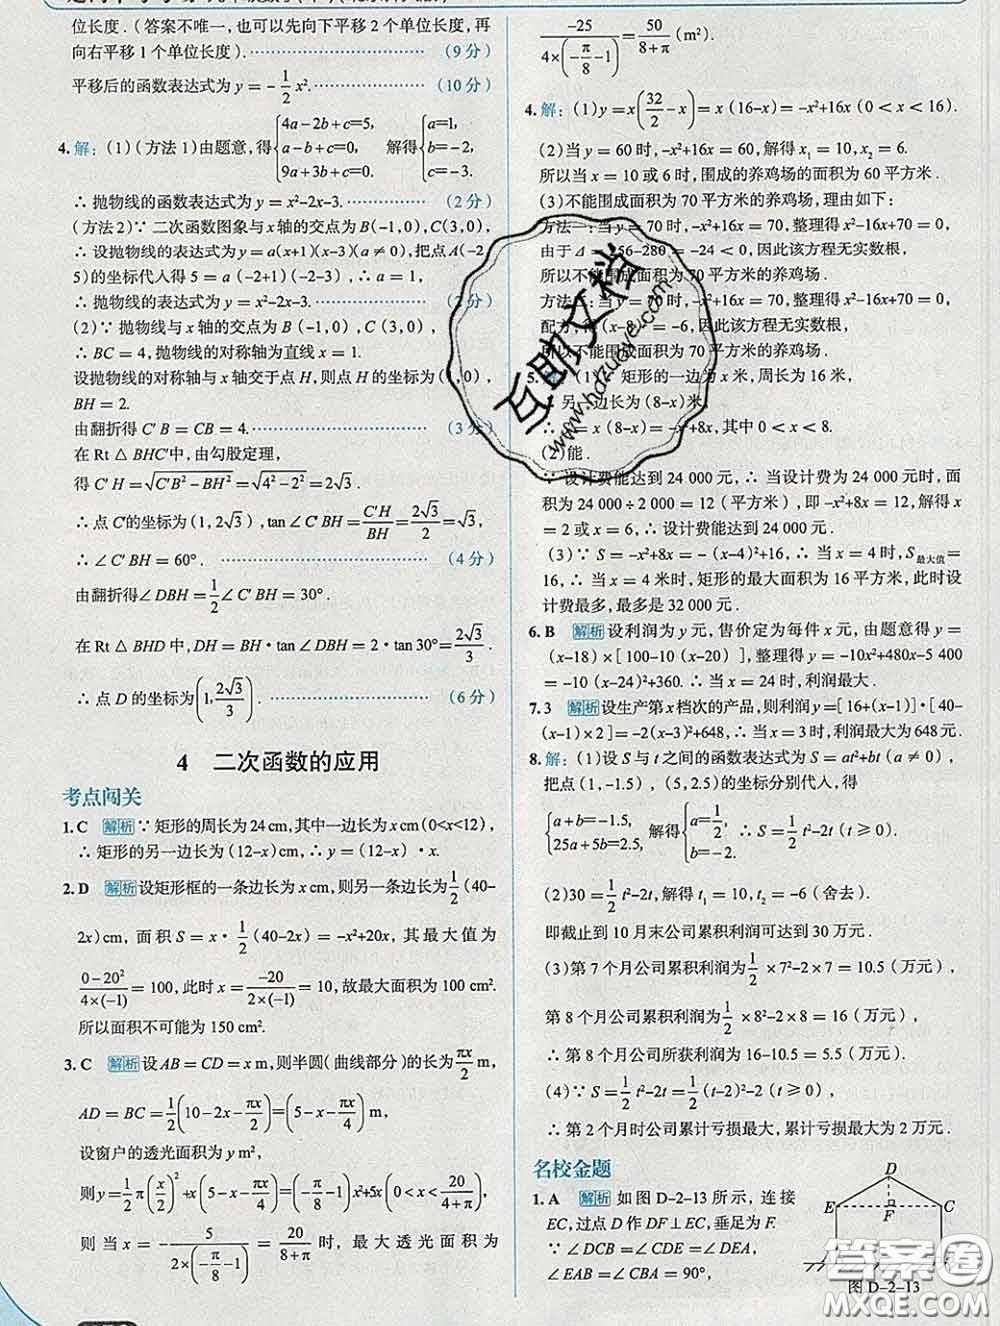 位长度. (答案不唯一, 也可以先向下平移 2 个单位长度, 再
向右平移 1 个单位长度) (9 分)
平移后的函数表达式为 y=-1/2 x². (10 分)
4. 解: (1) (方法 1) 由题意, 得 {4a-2b+c=5, a-b+c=0, 9a+3b+c=0. 解得 {a=1, b=-2, c=-3.
∴ 抛物线的函数表达式为 y=x²-2x-3. (2 分)
(方法 2) ∵ 二次函数图象与 x 轴的交点为 B(-1,0), C(3,0),
∴ 设抛物线的表达式为 y=a(x+1)(x-3)(a≠0), 把点 A(-2,
5) 的坐标代入得 5=a(-2+1)(-2-3), ∴ a=1,
∴ 抛物线的表达式为 y=x²-2x-3. (2 分)
(2) ∵ 抛物线与 x 轴的交点为 B(-1,0), C(3,0),
∴ BC=4, 抛物线的对称轴为直线 x=1.
设抛物线的对称轴与 x 轴交于点 H, 则点 H 的坐标为 (1,0),
BH=2.
由翻折得 C′B=CB=4. (3 分)
在 Rt△BHC′中, 由勾股定理,
得 C′H=√(C′B²-BH²)=√(4²-2²)=2√3.
∴ 点 C′的坐标为 (1,2√3), tan∠C′BH=C′H/BH=2√3/2=√3,
∴ ∠C′BH=60°. (4 分)
由翻折得∠DBH=1/2∠C′BH=30°.
在 Rt△BHD 中, DH=BH·tan∠DBH=2·tan30°=2√3/3.
∴ 点 D 的坐标为 (1, 2√3/3). (6 分)
4 二次函数的应用
考点闯关
1. C 解析 ∵ 矩形的周长为 24 cm, 其中一边长为 x cm(0<x<12),
∴ 矩形的另一边长为 (12-x)cm, ∴ y=(12-x)·x.
2. D 解析 设矩形框的一条边长为 x cm, 则另一条边长为 1/2(40-
2x)cm, 面积 S=x·1/2(40-2x)=-x²+20x, 其最大值为
(0-20²)/(4×(-1))=100, 此时 x=-20/(2×(-1))=10, 故最大面积为 100 cm².
所以面积不可能为 150 cm².
3. C 解析 设 AB=CD=x m, 则半圆(曲线部分)的长为 πx/2 m,
AD=BC=1/2(10-2x-πx/2)=(5-x-πx/4) m,
设窗户的透光面积为 y m²,
则 y=1/2π(x/2)²+x(5-x-πx/4)=(-π/8-1)x²+5x(0<x<20/(4+π)),
则当 x=-5/(2×(-π/8-1))=20/(8+π)时, 最大透光面积为
-25/(4×(-π/8-1))=50/(8+π)(m²).
4. 解: (1) y=x(32/2-x)=x(16-x)=-x²+16x(0<x<16).
(2) 当 y=60 时, -x²+16x=60, 解得 x₁=10, x₂=6.
所以当 x=10 或 6 时, 围成的养鸡场的面积为 60 平方米.
(3) 不能围成面积为 70 平方米的养鸡场. 理由如下:
方法一: 当 y=70 时, -x²+16x=70, 整理得 x²-16x+70=0,
由于 Δ=256-280=-24<0, 因此该方程无实数根,
所以不能围成面积为 70 平方米的养鸡场.
方法二: 当 y=70 时, -x²+16x=70, 整理得 x²-16x+70=0,
配方, 得 (x-8)²=-6, 因此该方程无实数根,
所以不能围成面积为 70 平方米的养鸡场.
5. 解: (1) ∵ 矩形的一边为 x 米, 周长为 16 米,
∴ 另一边长为 (8-x) 米,
∴ S=x(8-x)=-x²+8x, 其中 0<x<8.
(2) 能.
∵ 设计费能达到 24 000 元, ∴ 当设计费为 24 000 元时, 面
积为 24 000÷2 000=12 (平方米), 即 -x²+8x=12, 解得 x
=2 或 x=6, ∴ 设计费能达到 24 000 元.
(3) ∵ S=-x²+8x=-(x-4)²+16, ∴ 当 x=4 时, S最大值=
16, ∴ 当 x=4 米时, 矩形的最大面积为 16 平方米, 此时设
计费最多, 最多是 32 000 元.
6. B 解析 设利润为 y 元, 售价定为每件 x 元, 由题意得 y=
(x-18)×[100-10(x-20)], 整理得 y=-10x²+480x-5 400
=-10(x-24)²+360. ∴ 当 x=24 时, 利润最大.
7. 3 解析 设生产第 x 档次的产品, 则利润 y=[16+(x-1)]·[40-
(x-1)×2]=-2(x-3)²+648, ∴ 当 x=3 时, 利润最大为 648 元.
8. 解: (1) 设 S 与 t 之间的函数表达式为 S=at²+bt(a≠0),
把点 (1,-1.5), (5,2.5) 的坐标分别代入, 得
{a+b=-1.5, 25a+5b=2.5, 解得 {a=1/2, b=-2, ∴ S=1/2t²-2t(t≥0).
(2) 30=1/2t²-2t, 解得 t₁=10, t₂=-6 (舍去).
即截止到 10 月末公司累积利润可达到 30 万元.
(3) 第 7 个月公司累积利润为 1/2×7²-2×7=10.5 (万元),
第 8 个月公司累积利润为 1/2×8²-2×8=16 (万元),
∴ 第 8 个月公司所获利润为 16-10.5=5.5 (万元).
(4) ∵ S=1/2t²-2t=1/2(t-2)²-2(t≥0),
∴ 第 2 个月时公司累计亏损最大, 累计亏损最大为 2 万元.
名校金题
1. A 解析 如图 D-2-13 所示, 连接
EC, 过点 D 作 DF⊥EC, 垂足为 F.
∵ ∠DCB=∠CDE=∠DEA,
∠EAB=∠CBA=90°,
D
E
F
C
图 D-2-13
互助文档
www.hdzuoye.com
答案圈
MXQE.COM